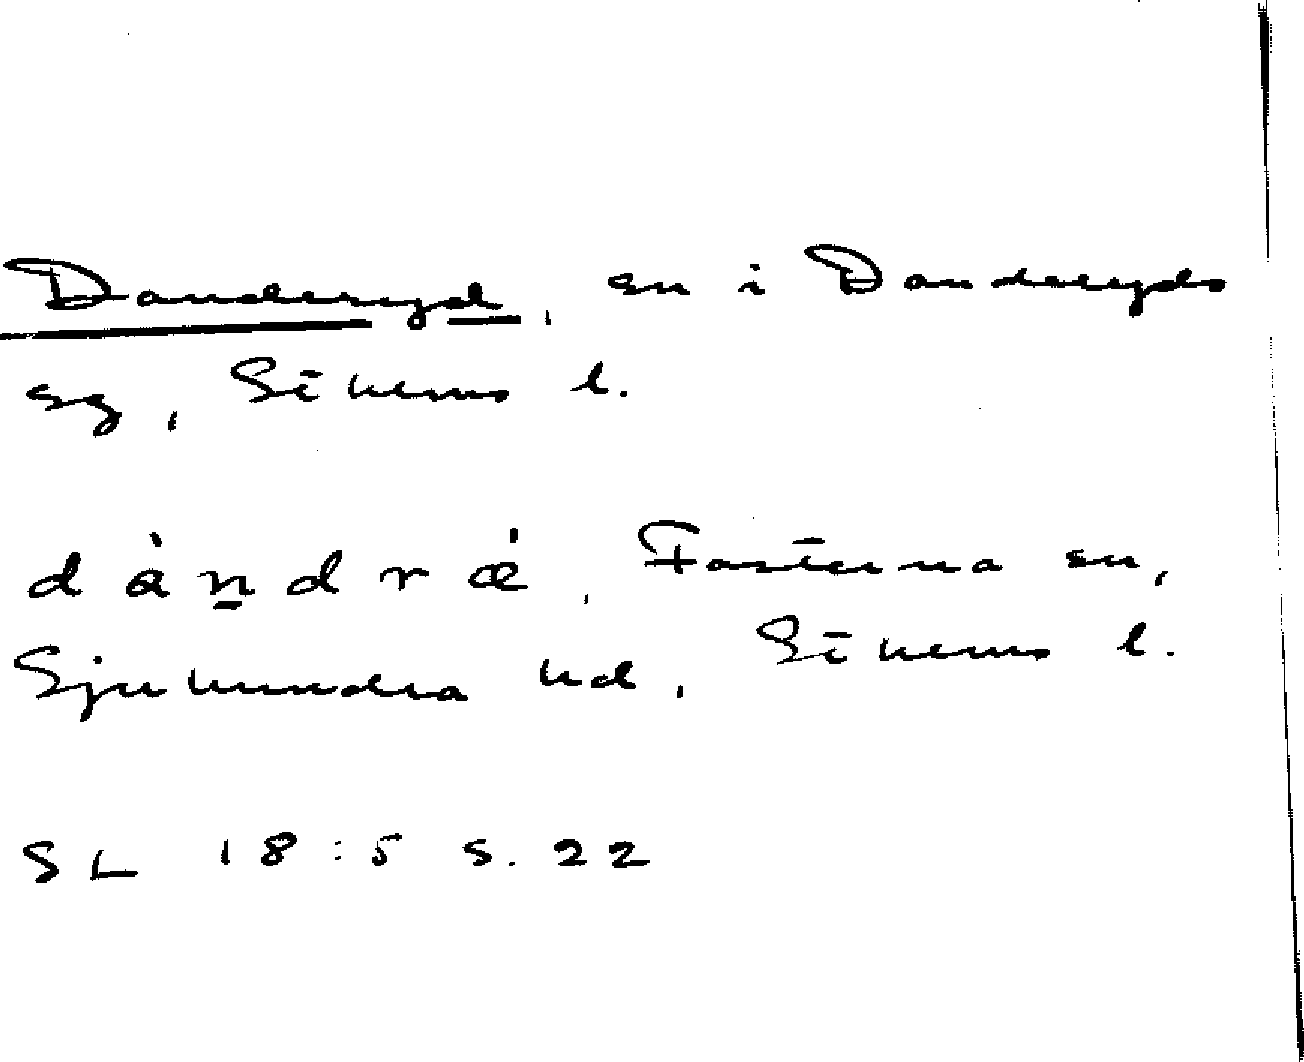 Danderyd, sn i Danderyds
sg, Sthlms l.
dàndrǽ, Fasterna sn,
Sjuhundra hd, Sthlms l.
SL 18:5 s. 22